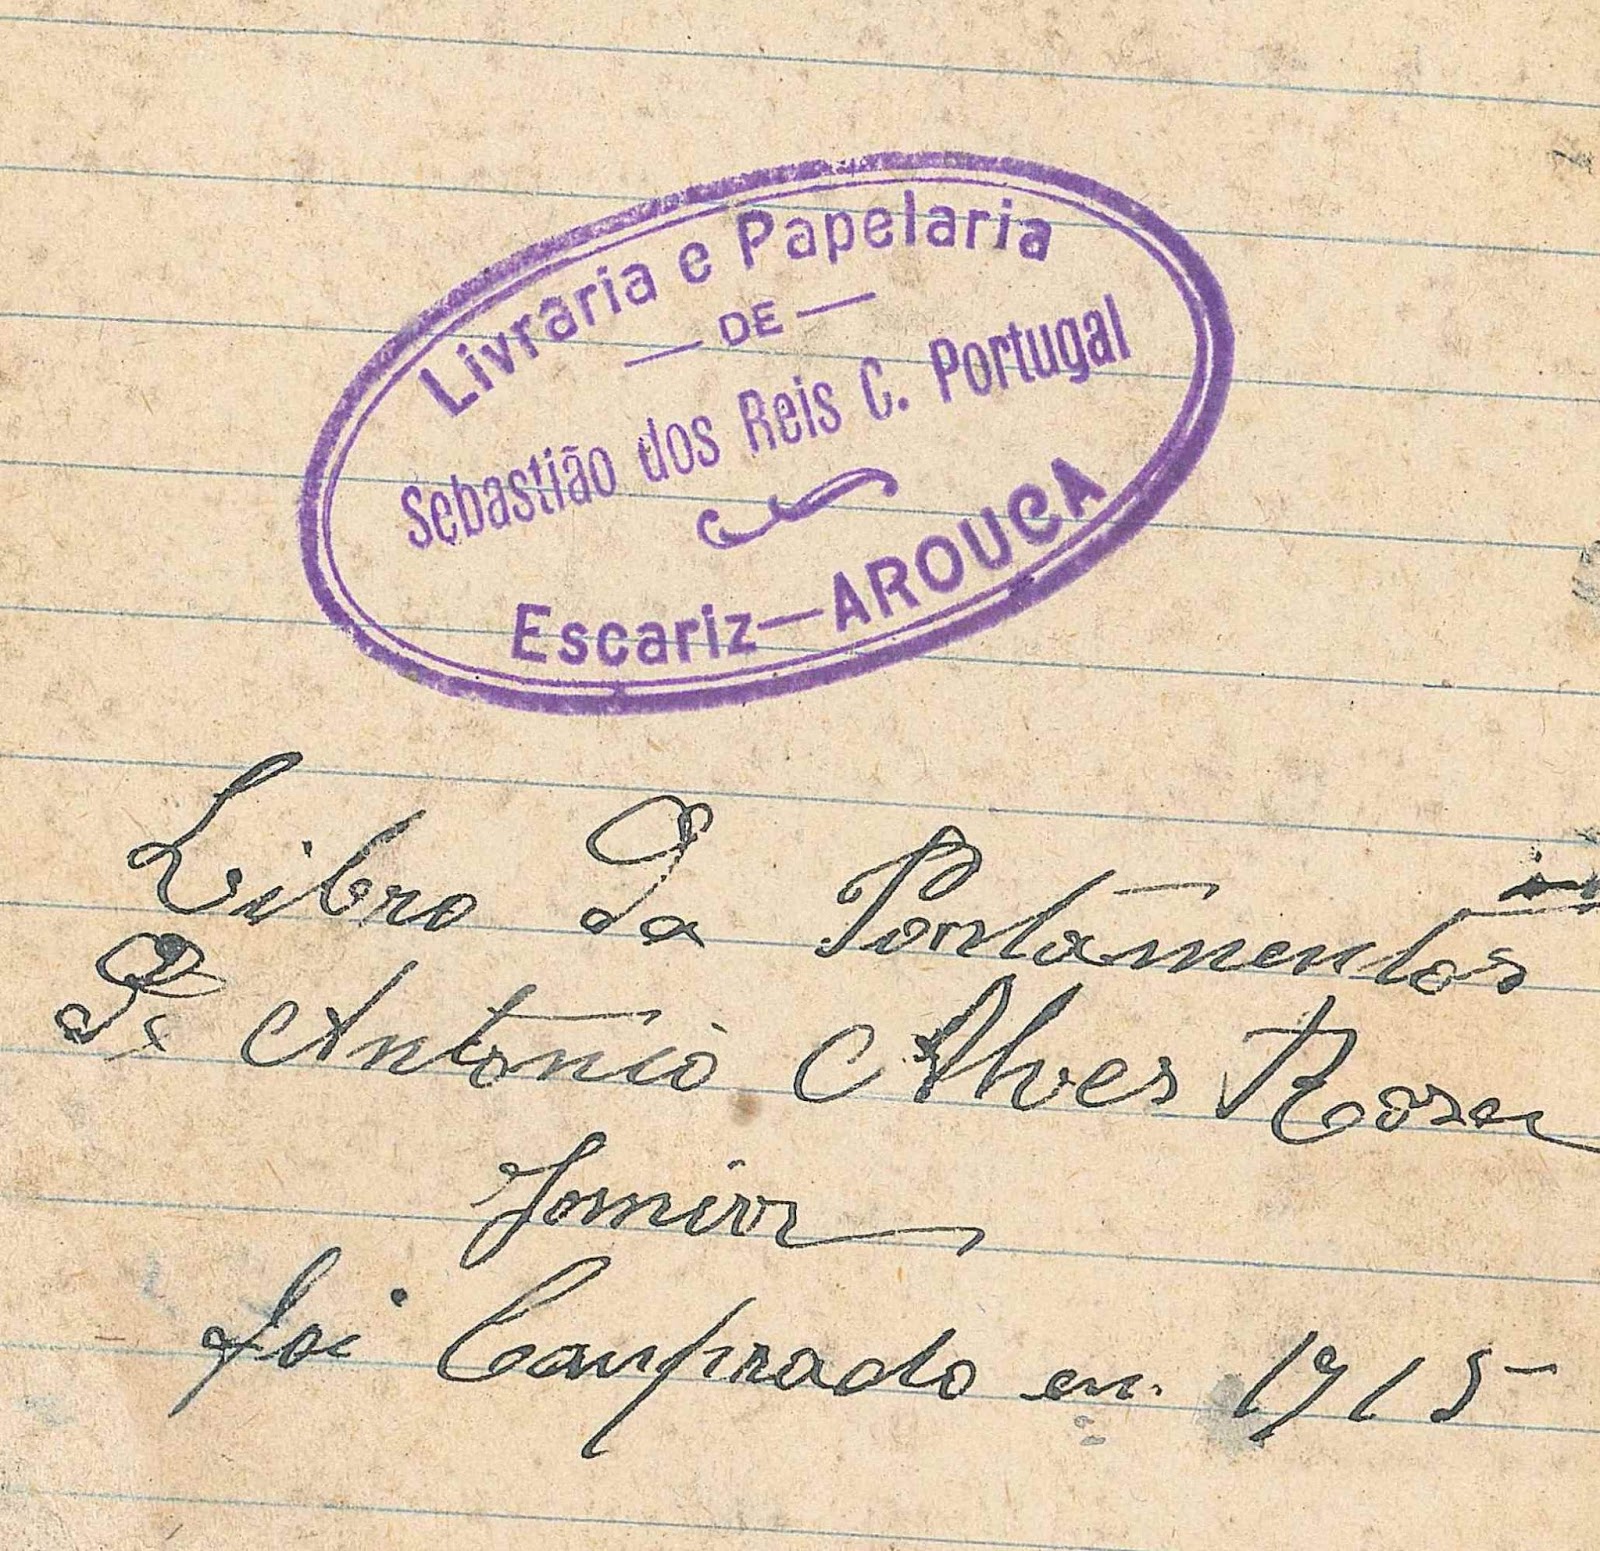 Livraria e Papelaria
DE
Sebastião dos Reis C. Portugal
Escariz—AROUCA
Libro Da Pontamentos
De Antonio Alves Rosa
Jonior
foi Comprado en 1915